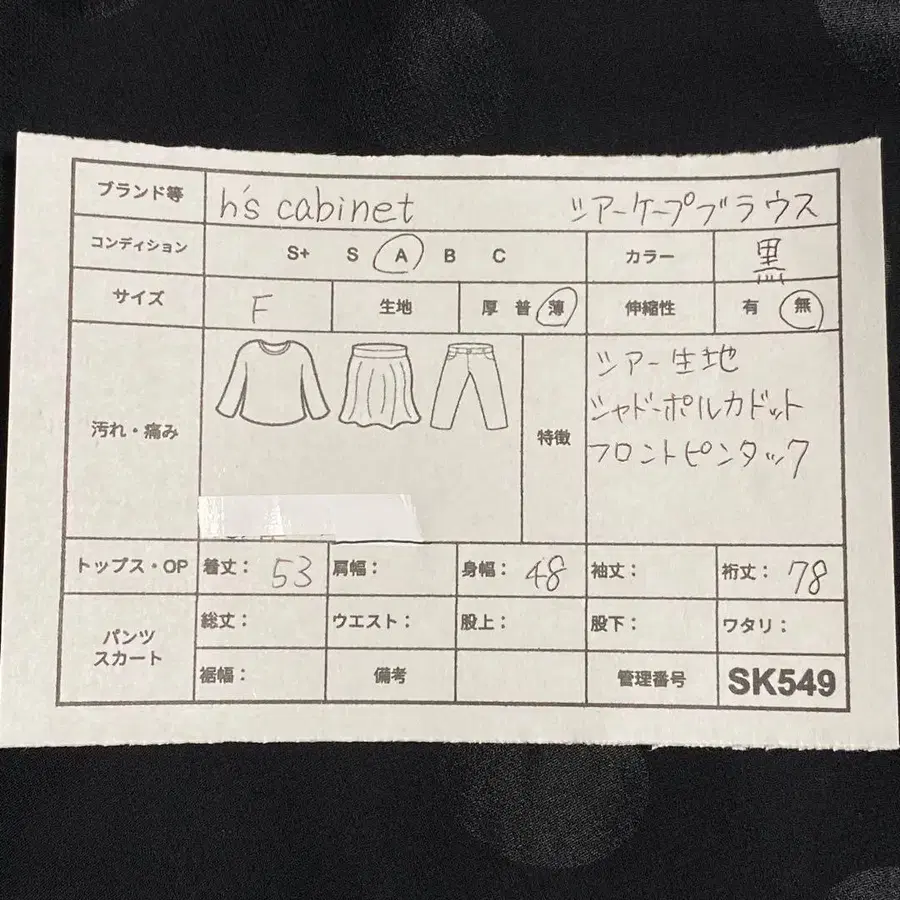 ブランド等 h's cabinet シアーケープブラウス
コンディション S+ S A B C カラー 黒
サイズ F 生地 厚 普 薄 伸縮性 有 無
汚れ・痛み 特徴
シアー生地
シャドーポルカドット
フロントピンタック
トップス・OP 着丈： 53 肩幅： 身幅： 48 袖丈： 裄丈： 78
パンツ
スカート
総丈： ウエスト： 股上： 股下： ワタリ：
裾幅： 備考 管理番号 SK549